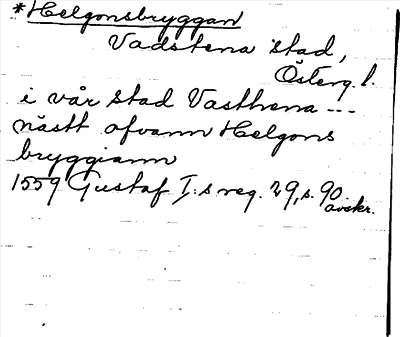 *Helgonsbryggan
Vadstena stad,
Österg. l.
i vår stad Vasthena ---
näst ofvann Helgons
bryggiann
1559 Gustaf I:s reg. 29, s. 90
avskr.